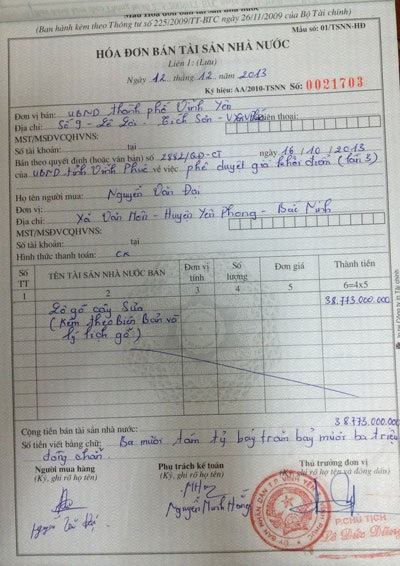 Mẫu Hóa đơn bán tài sản nhà nước
(Ban hành kèm theo Thông tư số 225/2009/TT-BTC ngày 26/11/2009 của Bộ Tài chính)
Mẫu số: 01/TSNN-HĐ
HÓA ĐƠN BÁN TÀI SẢN NHÀ NƯỚC
Liên 1: (Lưu)
Ngày 12 tháng 12 năm 2013
Ký hiệu: AA/2010-TSNN Số: 0021703
Đơn vị bán: UBND thành phố Vĩnh Yên
Địa chỉ: Số 9 - Lê Lợi - Tích Sơn - thoại:
MST/MSĐVCQHVNS:
Số tài khoản: tại
Bán theo quyết định (hoặc văn bản) số 2882/QĐ-CT ngày 16/10/2013
của UBND tỉnh Vĩnh Phúc về việc phê duyệt giá khởi điểm (lần 3)
Họ tên người mua: Nguyễn Văn Đại
Đơn vị:
Địa chỉ: Xã Văn Môn - Huyện Yên Phong - Bắc Ninh
MST/MSĐVCQHVNS:
Số tài khoản: tại
Hình thức thanh toán: CK
Số TT TÊN TÀI SẢN NHÀ NƯỚC BÁN Đơn vị tính Số lượng Đơn giá Thành tiền
1 2 3 4 5 6=4x5
Lô gỗ cây Sưa 38.773.000.000
(Kèm theo biên bản và
lý lịch gỗ)
Cộng tiền bán tài sản nhà nước: 38.773.000.000
Số tiền viết bằng chữ: Ba mươi tám tỷ bảy trăm bảy mươi ba triệu
đồng chẵn.
Người mua hàng Phụ trách kế toán Thủ trưởng đơn vị
(Ký, ghi rõ họ tên) (Ký, ghi rõ họ tên) (Ký, ghi rõ họ tên và đóng dấu)
Nguyễn Minh Hồng
P.CHỦ TỊCH
Lê Đức Dũng